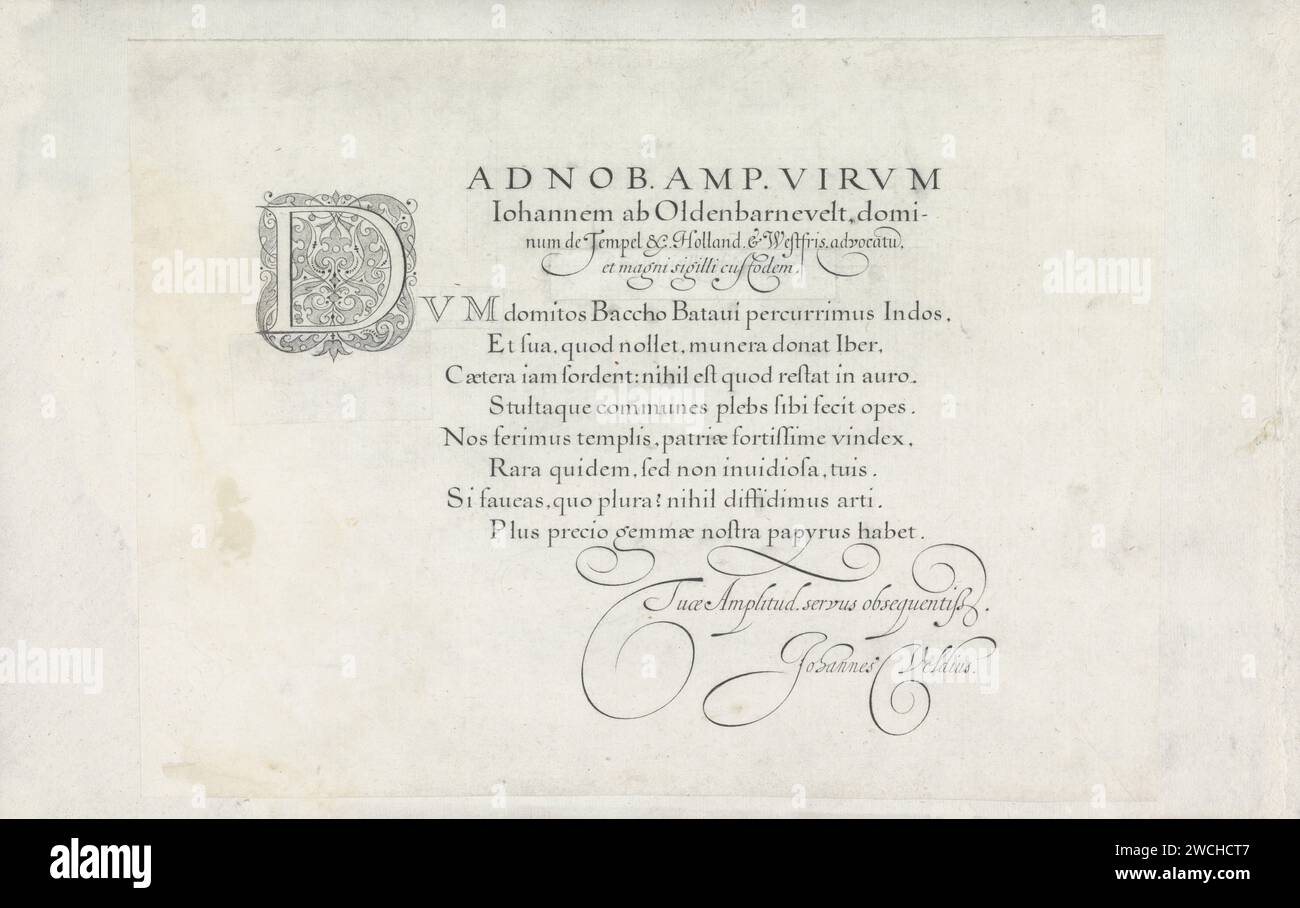 AD NOB. AMP. VIRVM
Iohannem ab Oldenbarnevelt, domi-
num de Tempel &c. Holland. & Westfris. advocatū.
et magni sigilli custodem.
DVM domitos Baccho Bataui percurrimus Indos,
Et sua, quod nollet, munera donat Iber,
Cætera iam sordent: nihil est quod restat in auro.
Stultaque communes plebs sibi fecit opes.
Nos ferimus templis, patriæ fortissime vindex,
Rara quidem, sed non inuidiosa, tuis.
Si faueas, quo plura? nihil diffidimus arti.
Plus precio gemmæ nostra papyrus habet.
Tuæ Amplitud. servus obsequentiss.
Johannes Veldius.
alamy
Image ID: 2WCHCT7
www.alamy.com